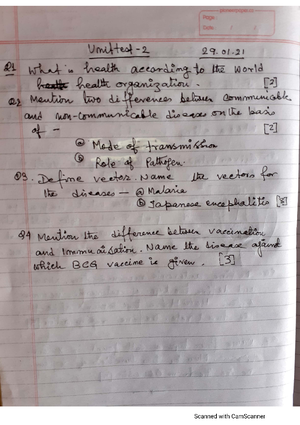 Page:
Date:
Unit test - 2 29.01.21
Q1 What is health according to the World
health organization. [2]
Q2 Mention two differences between communicable
and non-communicable diseases on the basis
of - [2]
(a) Mode of transmission
(b) Role of Pathogen.
Q3. Define vector. Name the vectors for
the diseases — (a) Malaria
(b) Japanese encephalitis
Q4 Mention the difference between vaccination
and Immunisation. Name the disease against
which BCG vaccine is given. [3]
Scanned with CamScanner